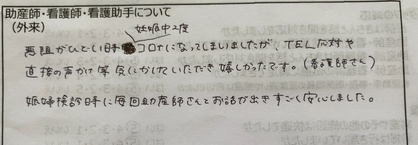 助産師・看護師・看護助手について
(外来)
妊娠中2度
悪阻がひどい時コロナになってしまいましたが、TEL応対や
直接の声かけ等気にかけていただき嬉しかったです。(看護師さん)
妊婦検診時に毎回助産師さんとお話が出きすごく安心しました。